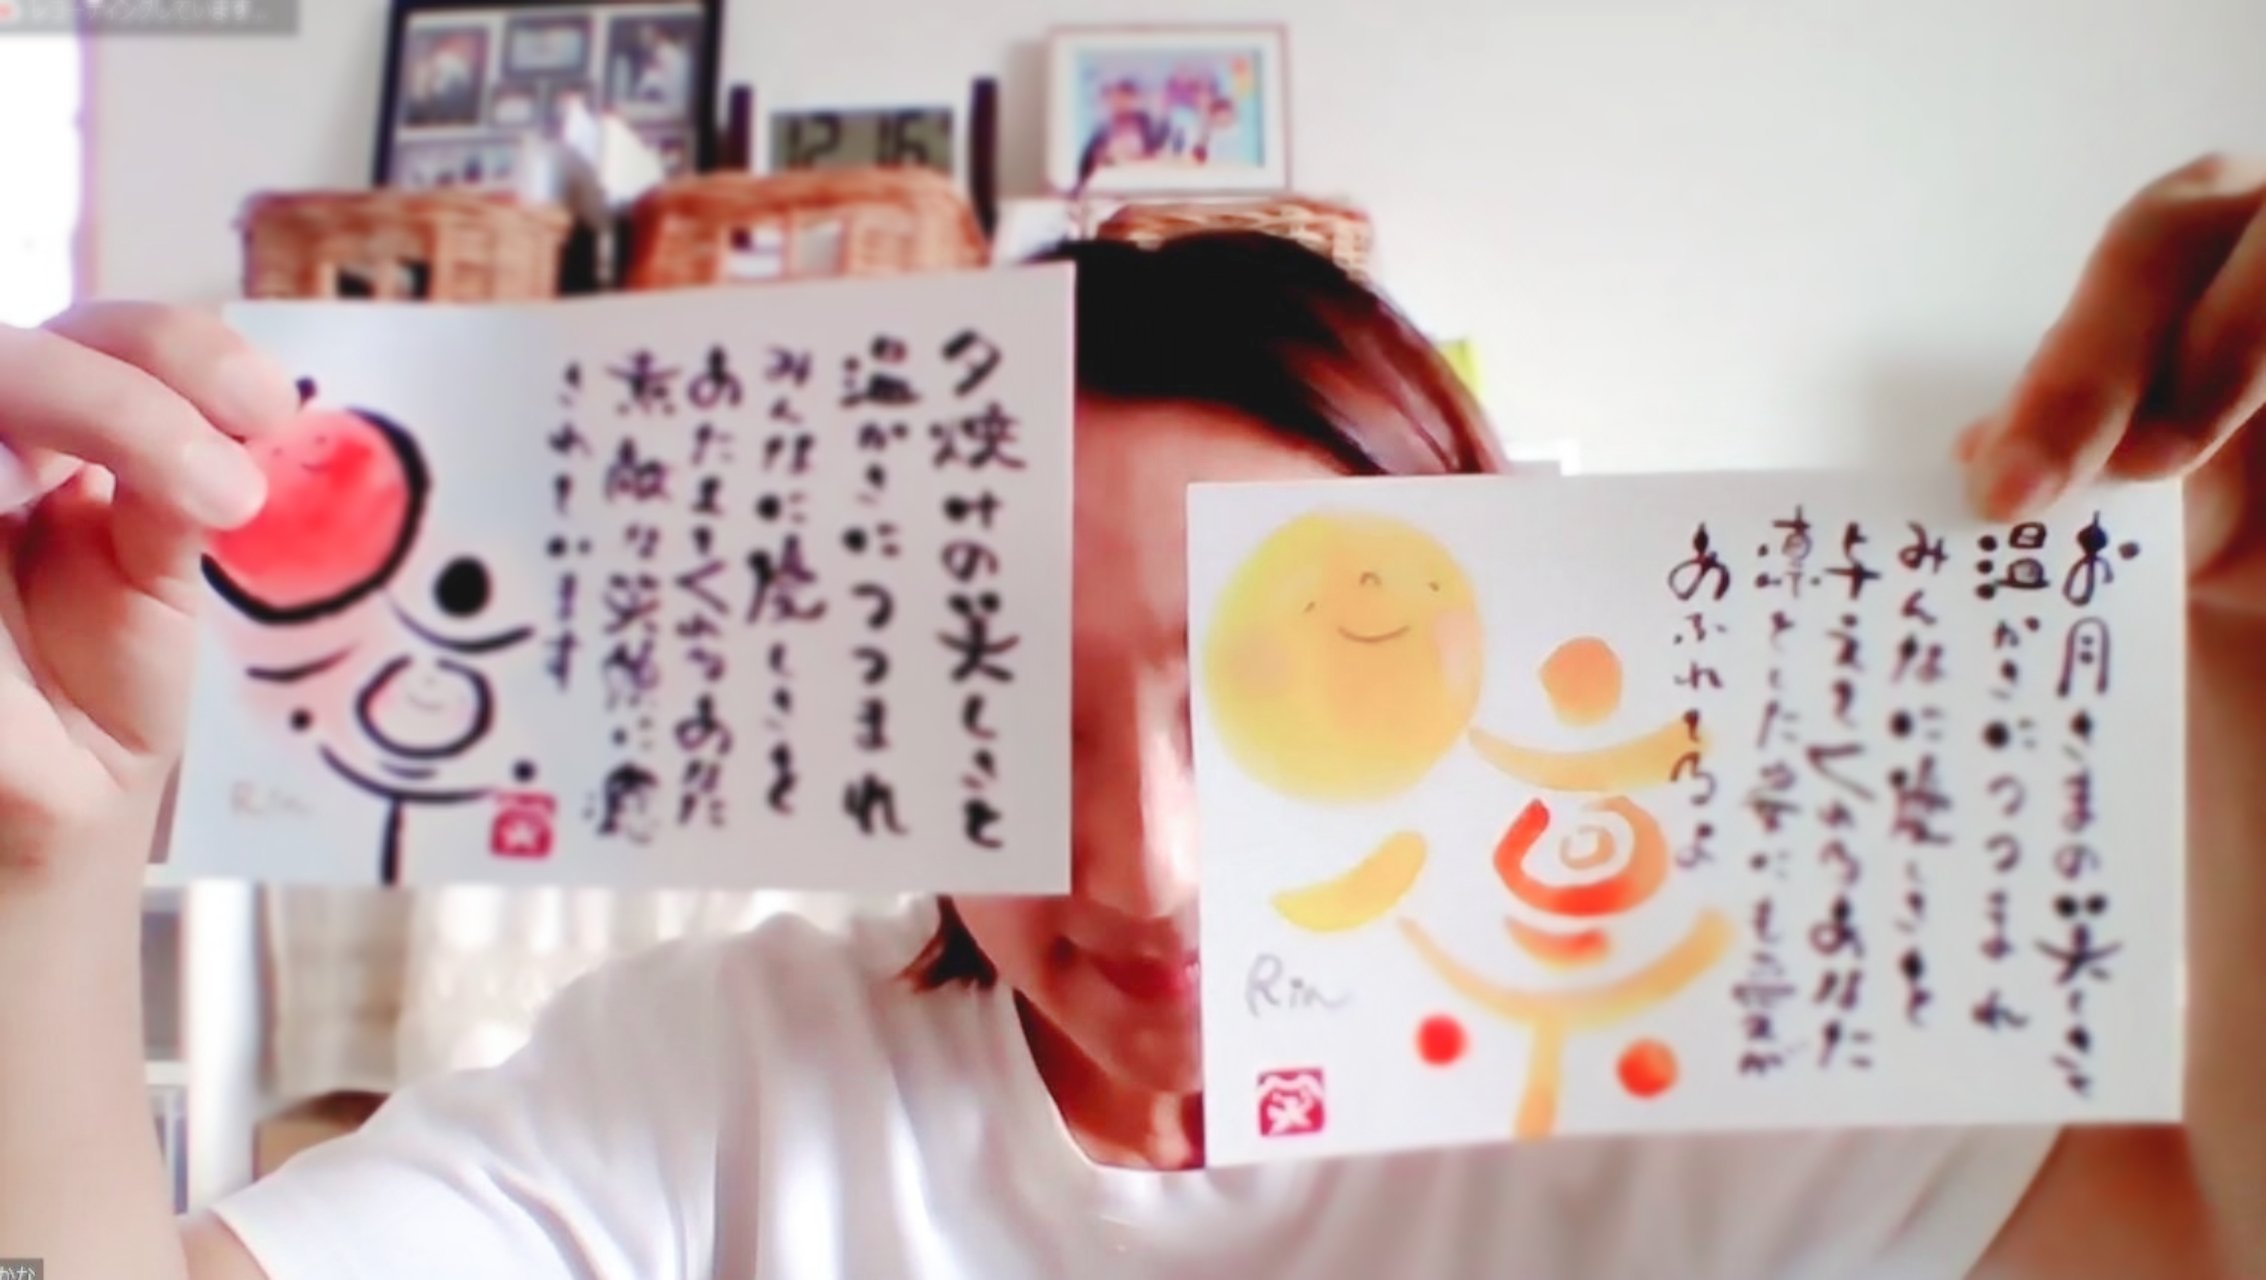 レコーディングしています...
12:16
夕焼けの美しさと
温かさにつつまれ
みんなに優しさを
あたえてくれるあなた
素敵な笑顔に癒
されています
Rin
お月さまの美しさと
温かさにつつまれ
みんなに優しさを
与えてくれるあなた
凛とした姿にも愛が
あふれてるよ
Rin